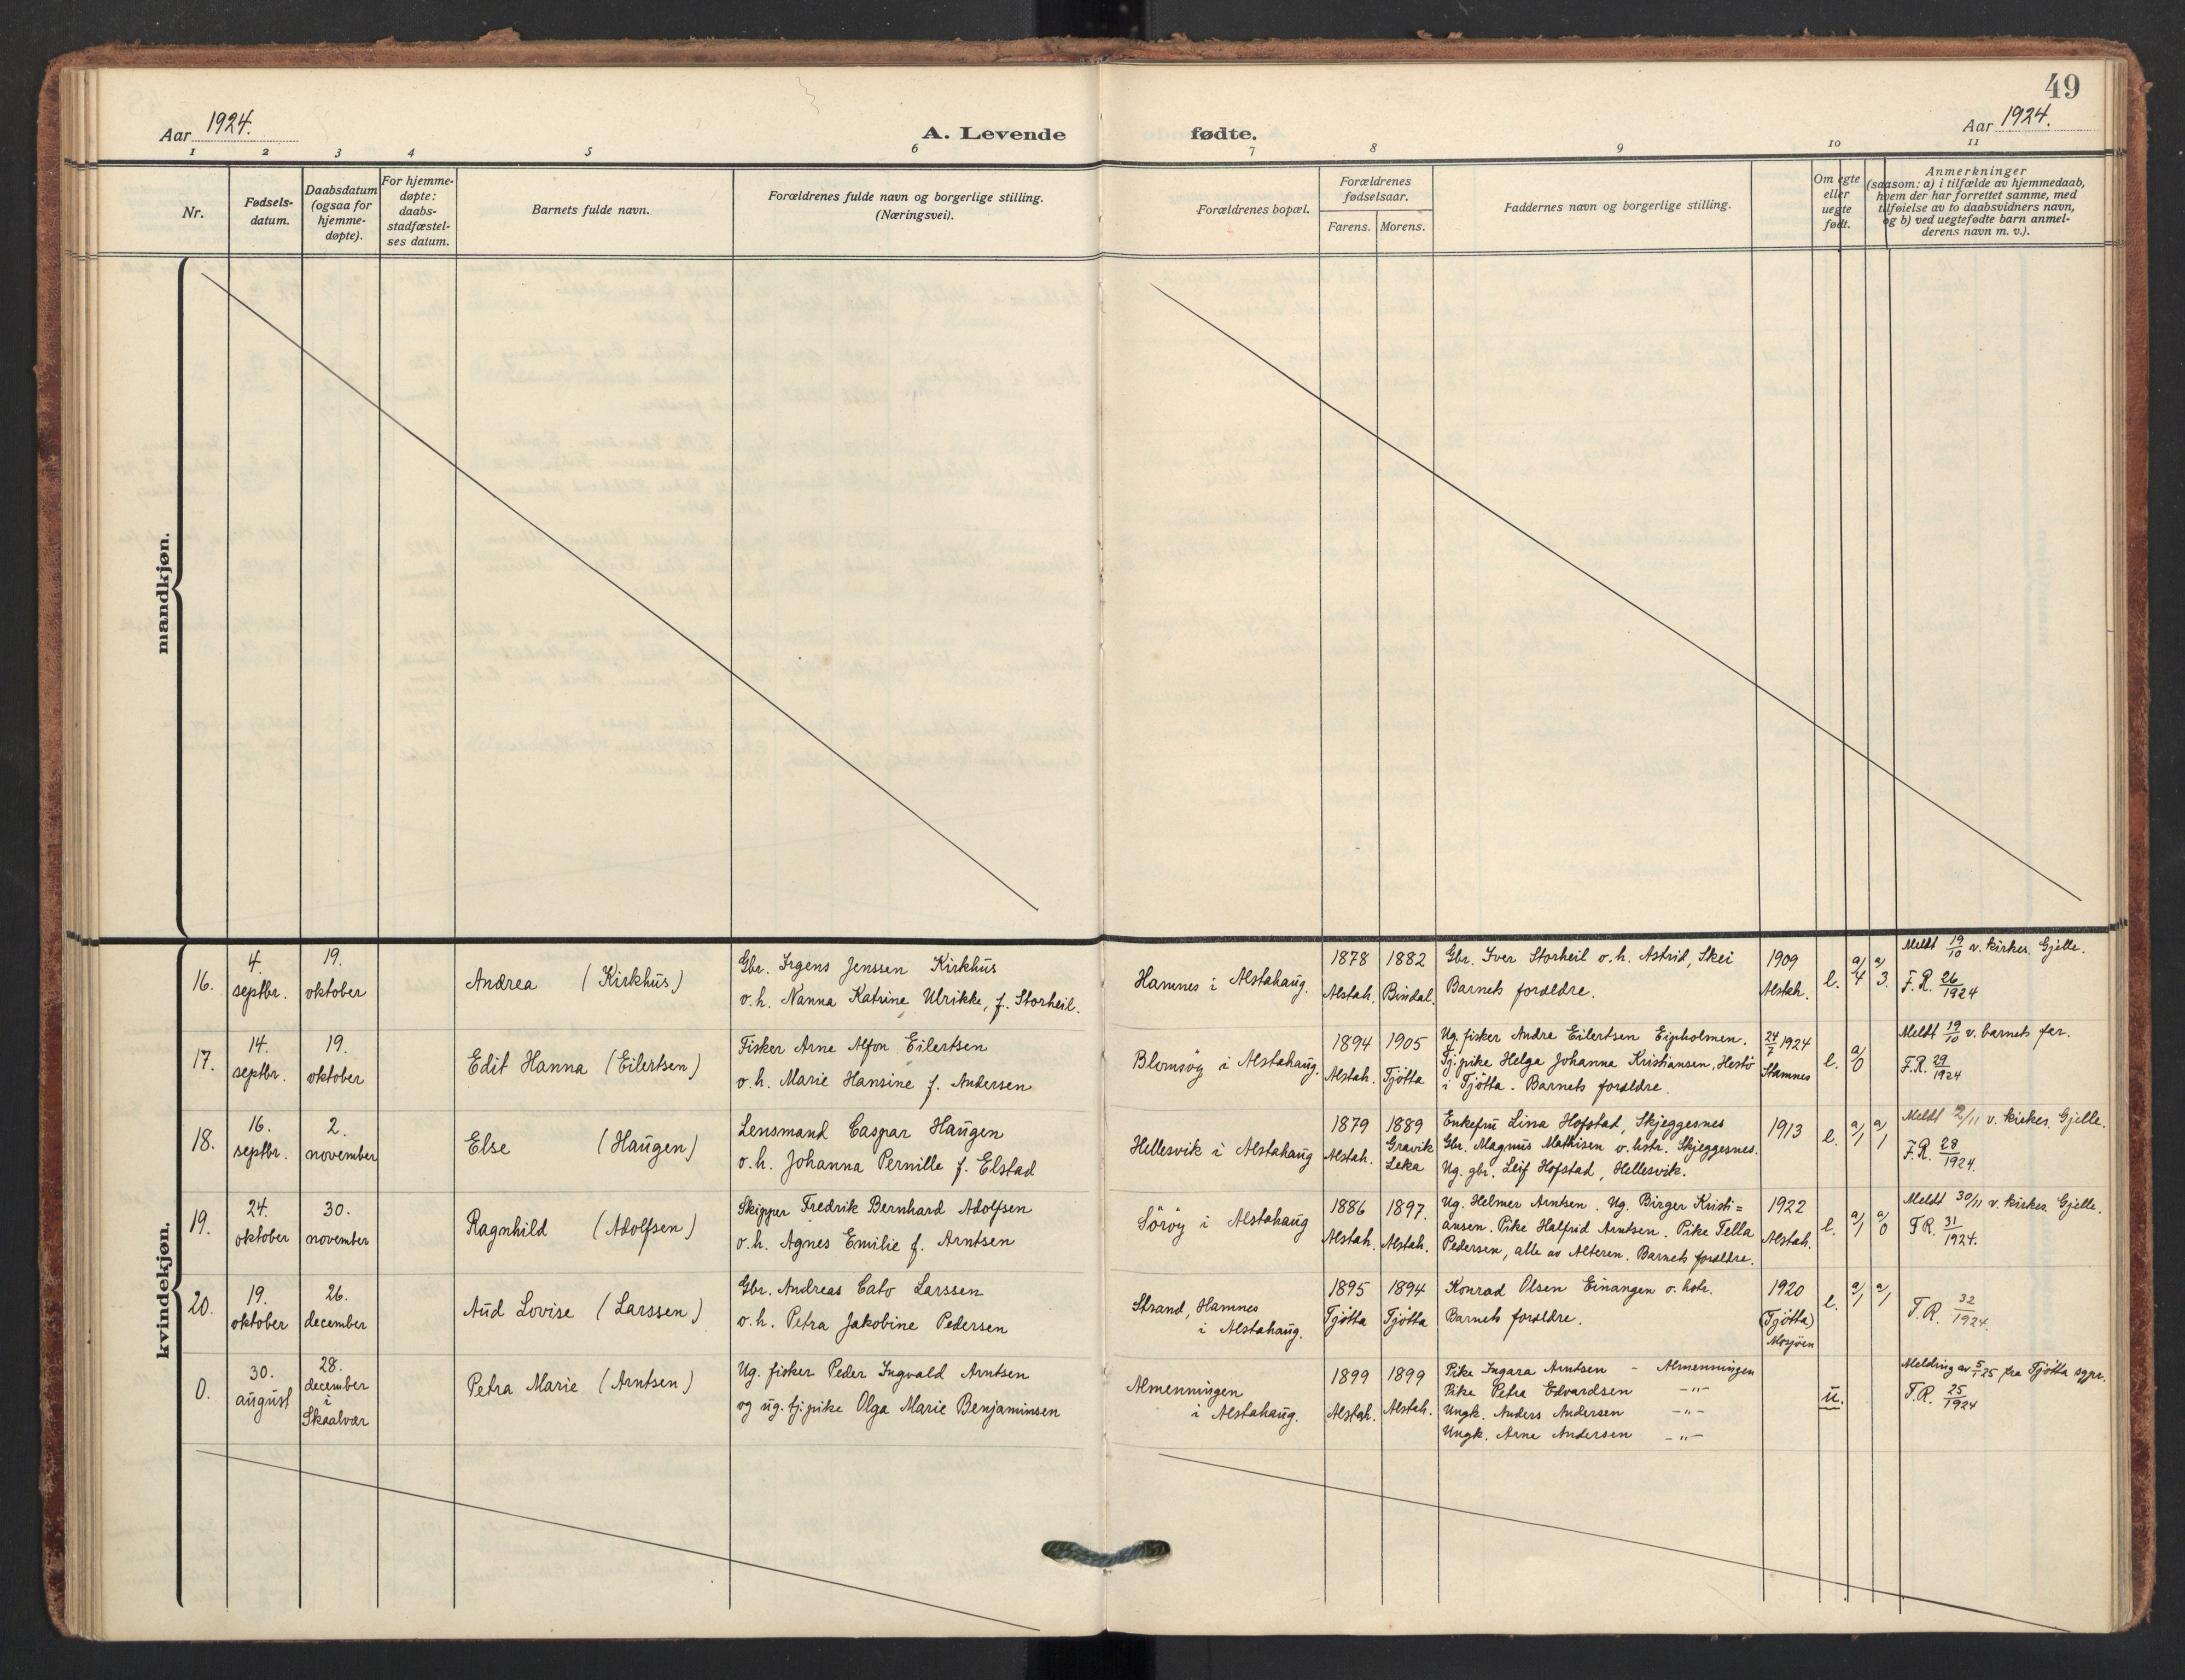 49
Aar 1924.
A. Levende fødte.
Aar 1924.
1 2 3 4 5 6 7 8 9 10 11
Nr.
Fødsels-
datum.
Daabsdatum
(ogsaa for
hjemme-
døpte).
For hjemme-
døpte:
daabs-
stadfæstel-
ses datum.
Barnets fulde navn.
Forældrenes fulde navn og borgerlige stilling.
(Næringsvei).
Forældrenes bopæl.
Forældrenes
fødselsaar.
Farens. Morens.
Faddernes navn og borgerlige stilling.
Om egte
eller
uegte
født.
Anmerkninger
(saasom: a) i tilfælde av hjemmedaab,
hvem der har forrettet samme, med
tilføielse av to daabsvidners navn,
og b) ved uegtefødte barn anmel-
derens navn m. v.).
mandkjøn.
kvindekjøn.
16.
4.
septbr.
19.
oktober
Andrea (Kirkhus)
Gbr. Irgens Jenssen Kirkhus
o.h. Nanna Katrine Ulrikke, f. Storheil.
Hamnes i Alstahaug.
1878
Alstah.
1882
Bindal.
Gbr. Iver Storheil o.h. Astrid, Skei
Barnets forældre.
1909
Alstah.
l.
a/4
a/3.
Meldt 19/10 v. kirkes. Gjelle.
F.R. 26/1924
17.
14.
septbr.
19.
oktober
Edit Hanna (Eilertsen)
Fisker Arne Alfon Eilertsen
o.h. Marie Hansine f. Andersen
Blomsöy i Alstahaug.
1894
Alstah.
1905
Tjötta
Ug. fisker Andre Eilertsen Eipholmen.
Tj. pike Helga Johanna Kristiansen, Hestö
i Tjötta. Barnets forældre.
24/7 1924
Stamnes
l.
a/0
Meldt 19/10 v. barnets far.
F.R. 29/1924
18.
16.
septbr.
2.
november
Else (Haugen)
Lensmand Caspar Haugen
o.h. Johanna Pernille f. Elstad
Hellesvik i Alstahaug
1879
Alstah.
1889
Gravik
Leka
Enkefru Lina Hofstad, Skjeggesnes
Gbr. Magnus Mathisen o. hstr. Skjeggesnes.
Ug. gbr. Leif Hofstad, Hellesvik.
1913
l.
a/1
a/1
Meldt 2/11 v. kirkes. Gjelle.
F.R. 28/1924.
19.
24.
oktober
30.
november
Ragnhild (Adolfsen)
Skipper Fredrik Bernhard Adolfsen
o.h. Agnes Emilie f. Arntsen
Söröy i Alstahaug
1886
Alstah.
1897.
Alstah.
Ug. Helmer Arntsen. Ug. Birger Kristi=
ansen. Pike Halfrid Arntsen. Pike Tella
Pedersen, alle av Alteren. Barnets forældre.
1922
Alstah.
l.
a/1
a/0
Meldt 30/11 v. kirkes. Gjelle.
F.R. 31/1924.
20.
19.
oktober
26.
december
Aud Lovise (Larssen)
Gbr. Andreas Cato Larssen
o.h. Petra Jakobine Pedersen
Strand, Hamnes
i Alstahaug.
1895
Tjötta
1894
Tjötta
Konrad Olsen Einangen o. hstr.
Barnets forældre.
1920
(Tjötta)
Mosjöen
l.
a/1
a/1
F.R. 32/1924.
0.
30.
august
28.
december
i
Skaalvær
Petra Marie (Arntsen)
Ug. fisker Peder Ingvald Arntsen
og ug. tj. pike Olga Marie Benjaminsen
Almenningen
i Alstahaug.
1899
Alstah.
1899
Alstah.
Pike Ingara Arntsen - Almenningen
Pike Petra Edvardsen -"-
Ungk. Anders Andersen -"-
Ungk. Arne Andersen -"-
u.
Melding av 5/1 25 fra Tjötta sgpr.
F.R. 25/1924